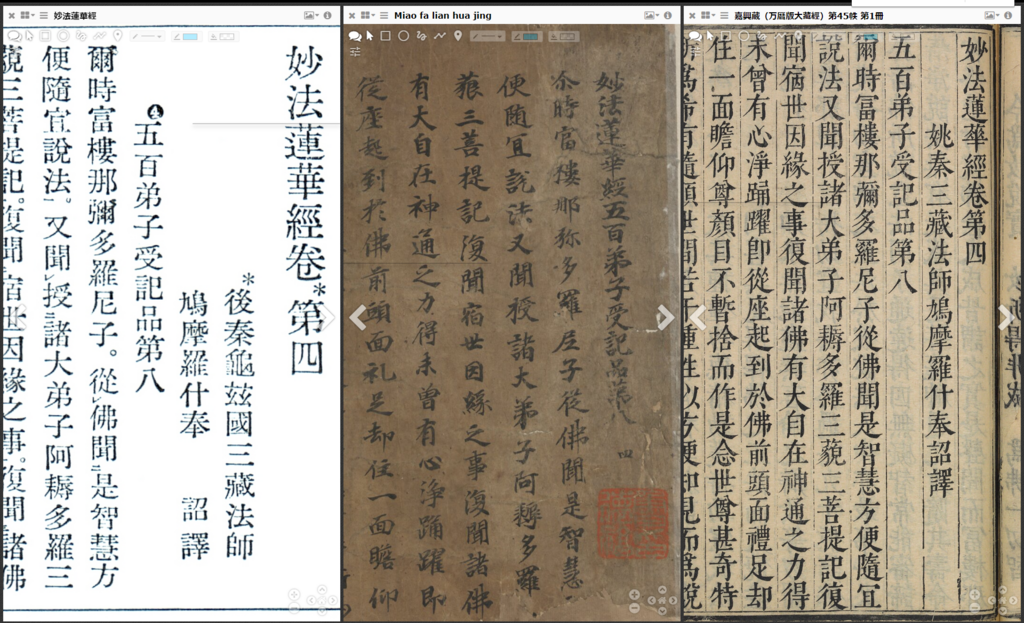 妙法蓮華經
妙法蓮華經卷*第四
*後秦龜茲國三藏法師
鳩摩羅什奉 詔譯
五百弟子受記品第八
爾時富樓那彌多羅尼子。從佛聞是智慧方
便隨宜說法。又聞授諸大弟子阿耨多羅三
藐三菩提記。復聞宿世因緣之事。復聞諸佛
Miao fa lian hua jing
妙法蓮華經五百弟子受記品第八
四
尒時富樓那弥多羅尼子從佛聞是智慧
便随宜說法又聞授諸大弟子阿耨多羅
藐三菩提記復聞宿世因緣之事復聞諸佛
有大自在神通之力得未曾有心淨踊躍即
從座起到於佛前頭面礼足却住一面瞻仰
嘉興藏（万暦版大藏經）第45帙 第1冊
妙法蓮華經卷第四
姚秦三藏法師鳩摩羅什奉詔譯
五百弟子受記品第八
爾時富樓那彌多羅尼子從佛聞是智慧方便隨宜
說法又聞授諸大弟子阿耨多羅三藐三菩提記復
聞宿世因緣之事復聞諸佛有大自在神通之力得
未曾有心淨踊躍卽從座起到於佛前頭面禮足却
住一面瞻仰尊顏目不暫捨而作是念世尊甚奇特
所爲希有隨順世間若干種性以方便知見而爲說